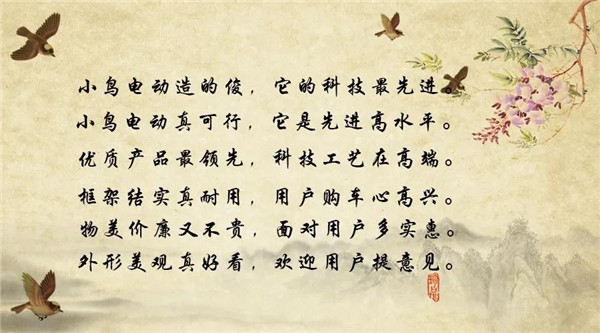 小鸟电动造的俊，它的科技最先进。
小鸟电动真可行，它是先进高水平。
优质产品最领先，科技工艺在高端。
框架结实真耐用，用户购车心高兴。
物美价廉又不贵，面对用户多实惠。
外形美观真好看，欢迎用户提意见。